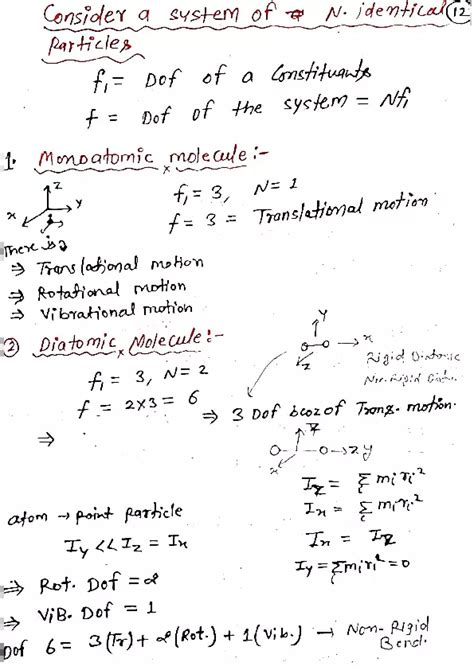 Consider a system of N. identical (12)
Particles
f₁ = Dof of a Constituants
f = Dof of the system = Nf₁
1. Monoatomic molecule :-
z
y
x
f₁ = 3, N = 1
f = 3 = Translational motion
There is 2
⇒ Translational motion
⇒ Rotational motion
⇒ Vibrational motion
② Diatomic Molecule :-
y
x
z
Rigid Diatomic
Non-Rigid
f₁ = 3, N = 2
f = 2×3 = 6 ⇒ 3 Dof bcoz of Trans. motion.
⇒
z
y
x
I_z = Σ mᵢrᵢ²
I_x = Σ mᵢrᵢ²
atom → point particle
I_x = I_z
I_y << I_z = I_x
I_y = Σmᵢrᵢ² = 0
⇒ Rot. Dof = 2
⇒ ViB. Dof = 1
Dof 6 = 3(Tr) + 2(Rot.) + 1(Vib.) → Non-Rigid
Bend.